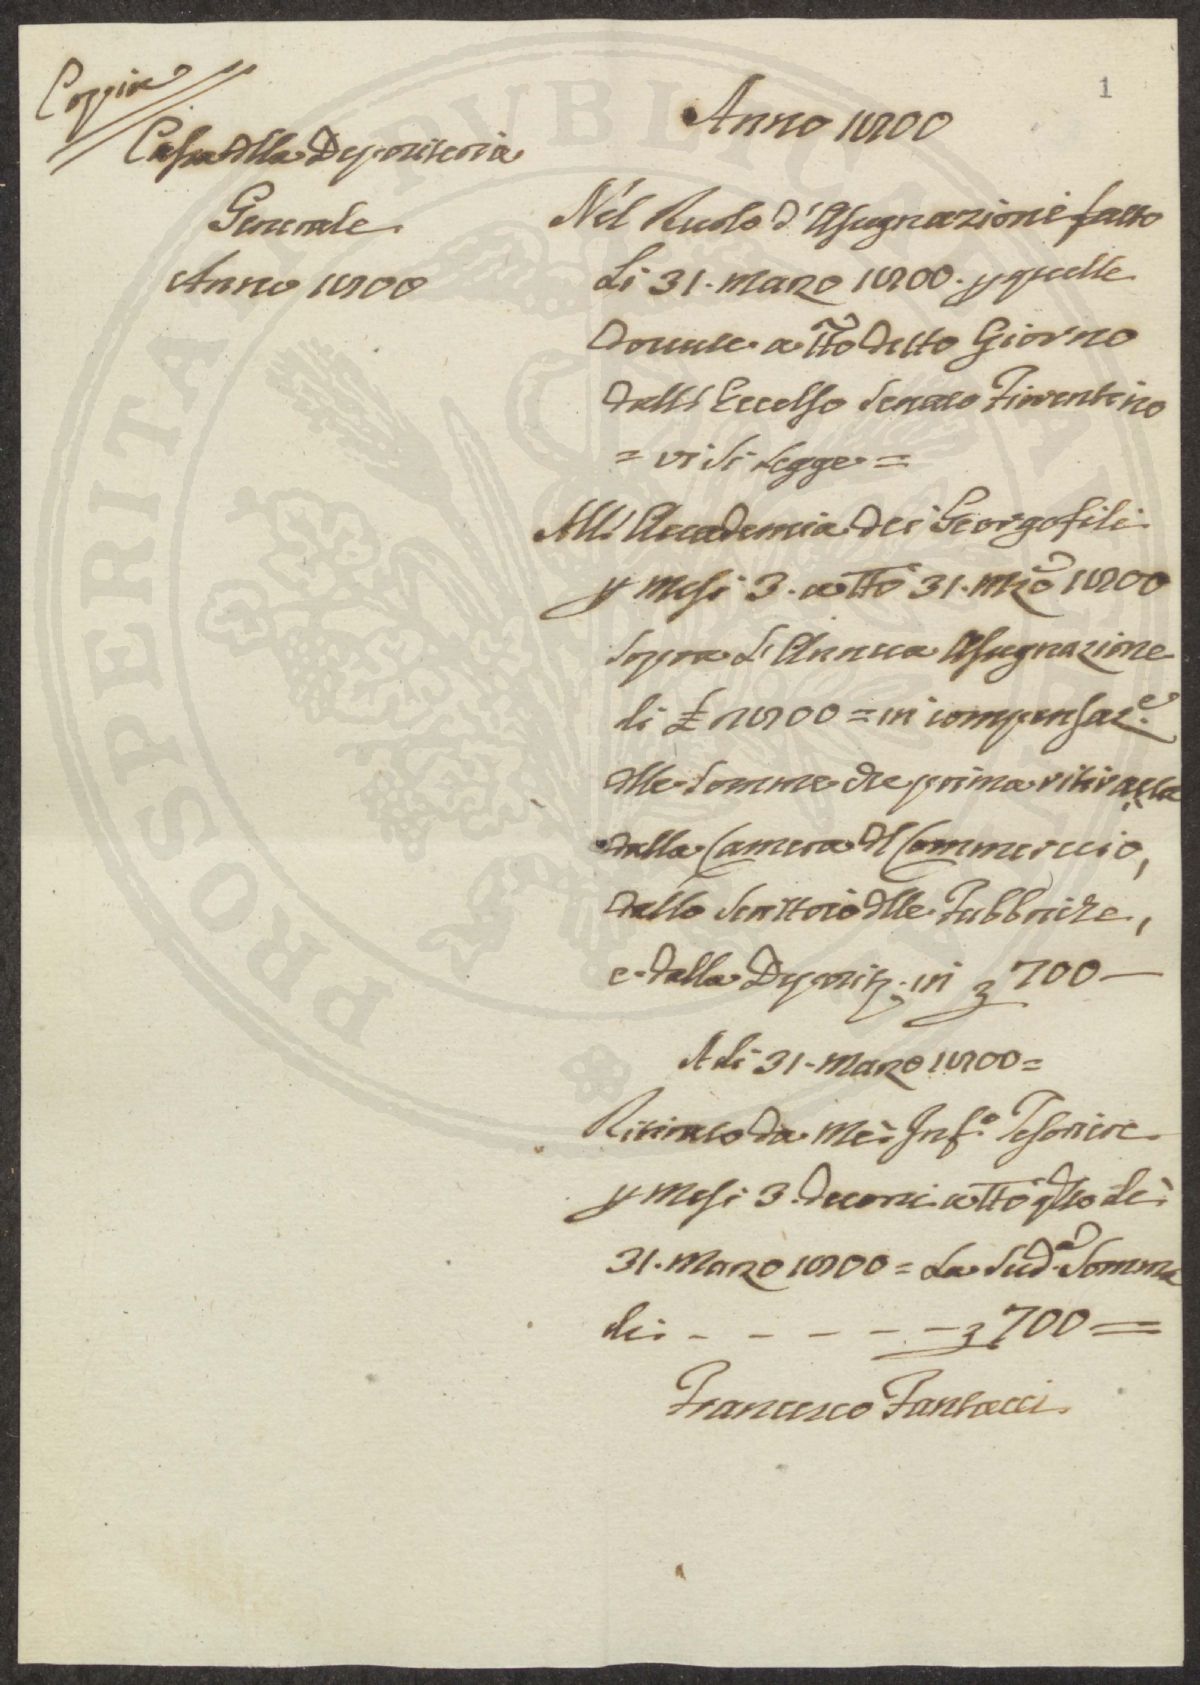 1
Coppia
Cassa della Depositeria
Generale
Anno 1800
Anno 1800
Nel Ruolo d'Assegnazioni fatto
li 31. Marzo 1800. p quelle
dovute a tto detto Giorno
dall'Eccelso Senato Fiorentino
= vi si legge =
All'Accademia dei Georgofili
p Mesi 3. a tto 31. Mzo 1800
sopra l'Annua Assegnazione
di £ 2800 = in compensaz.e
delle somme che prima ritirava
dalla Camera del Commercio,
dallo Scrittoio delle Fabbriche,
e dalla Deposit.: in £ 700 —
A di 31. Marzo 1800 =
Ritirato da Me Inf.o Tesoriere
p Mesi 3. decorsi a tto qsto di
31. Marzo 1800 = La Sud.a Somma
di: - - - - - - £ 700 =
Francesco Pantacci
PROSPERITATI PVBLICAE AVGENDAE